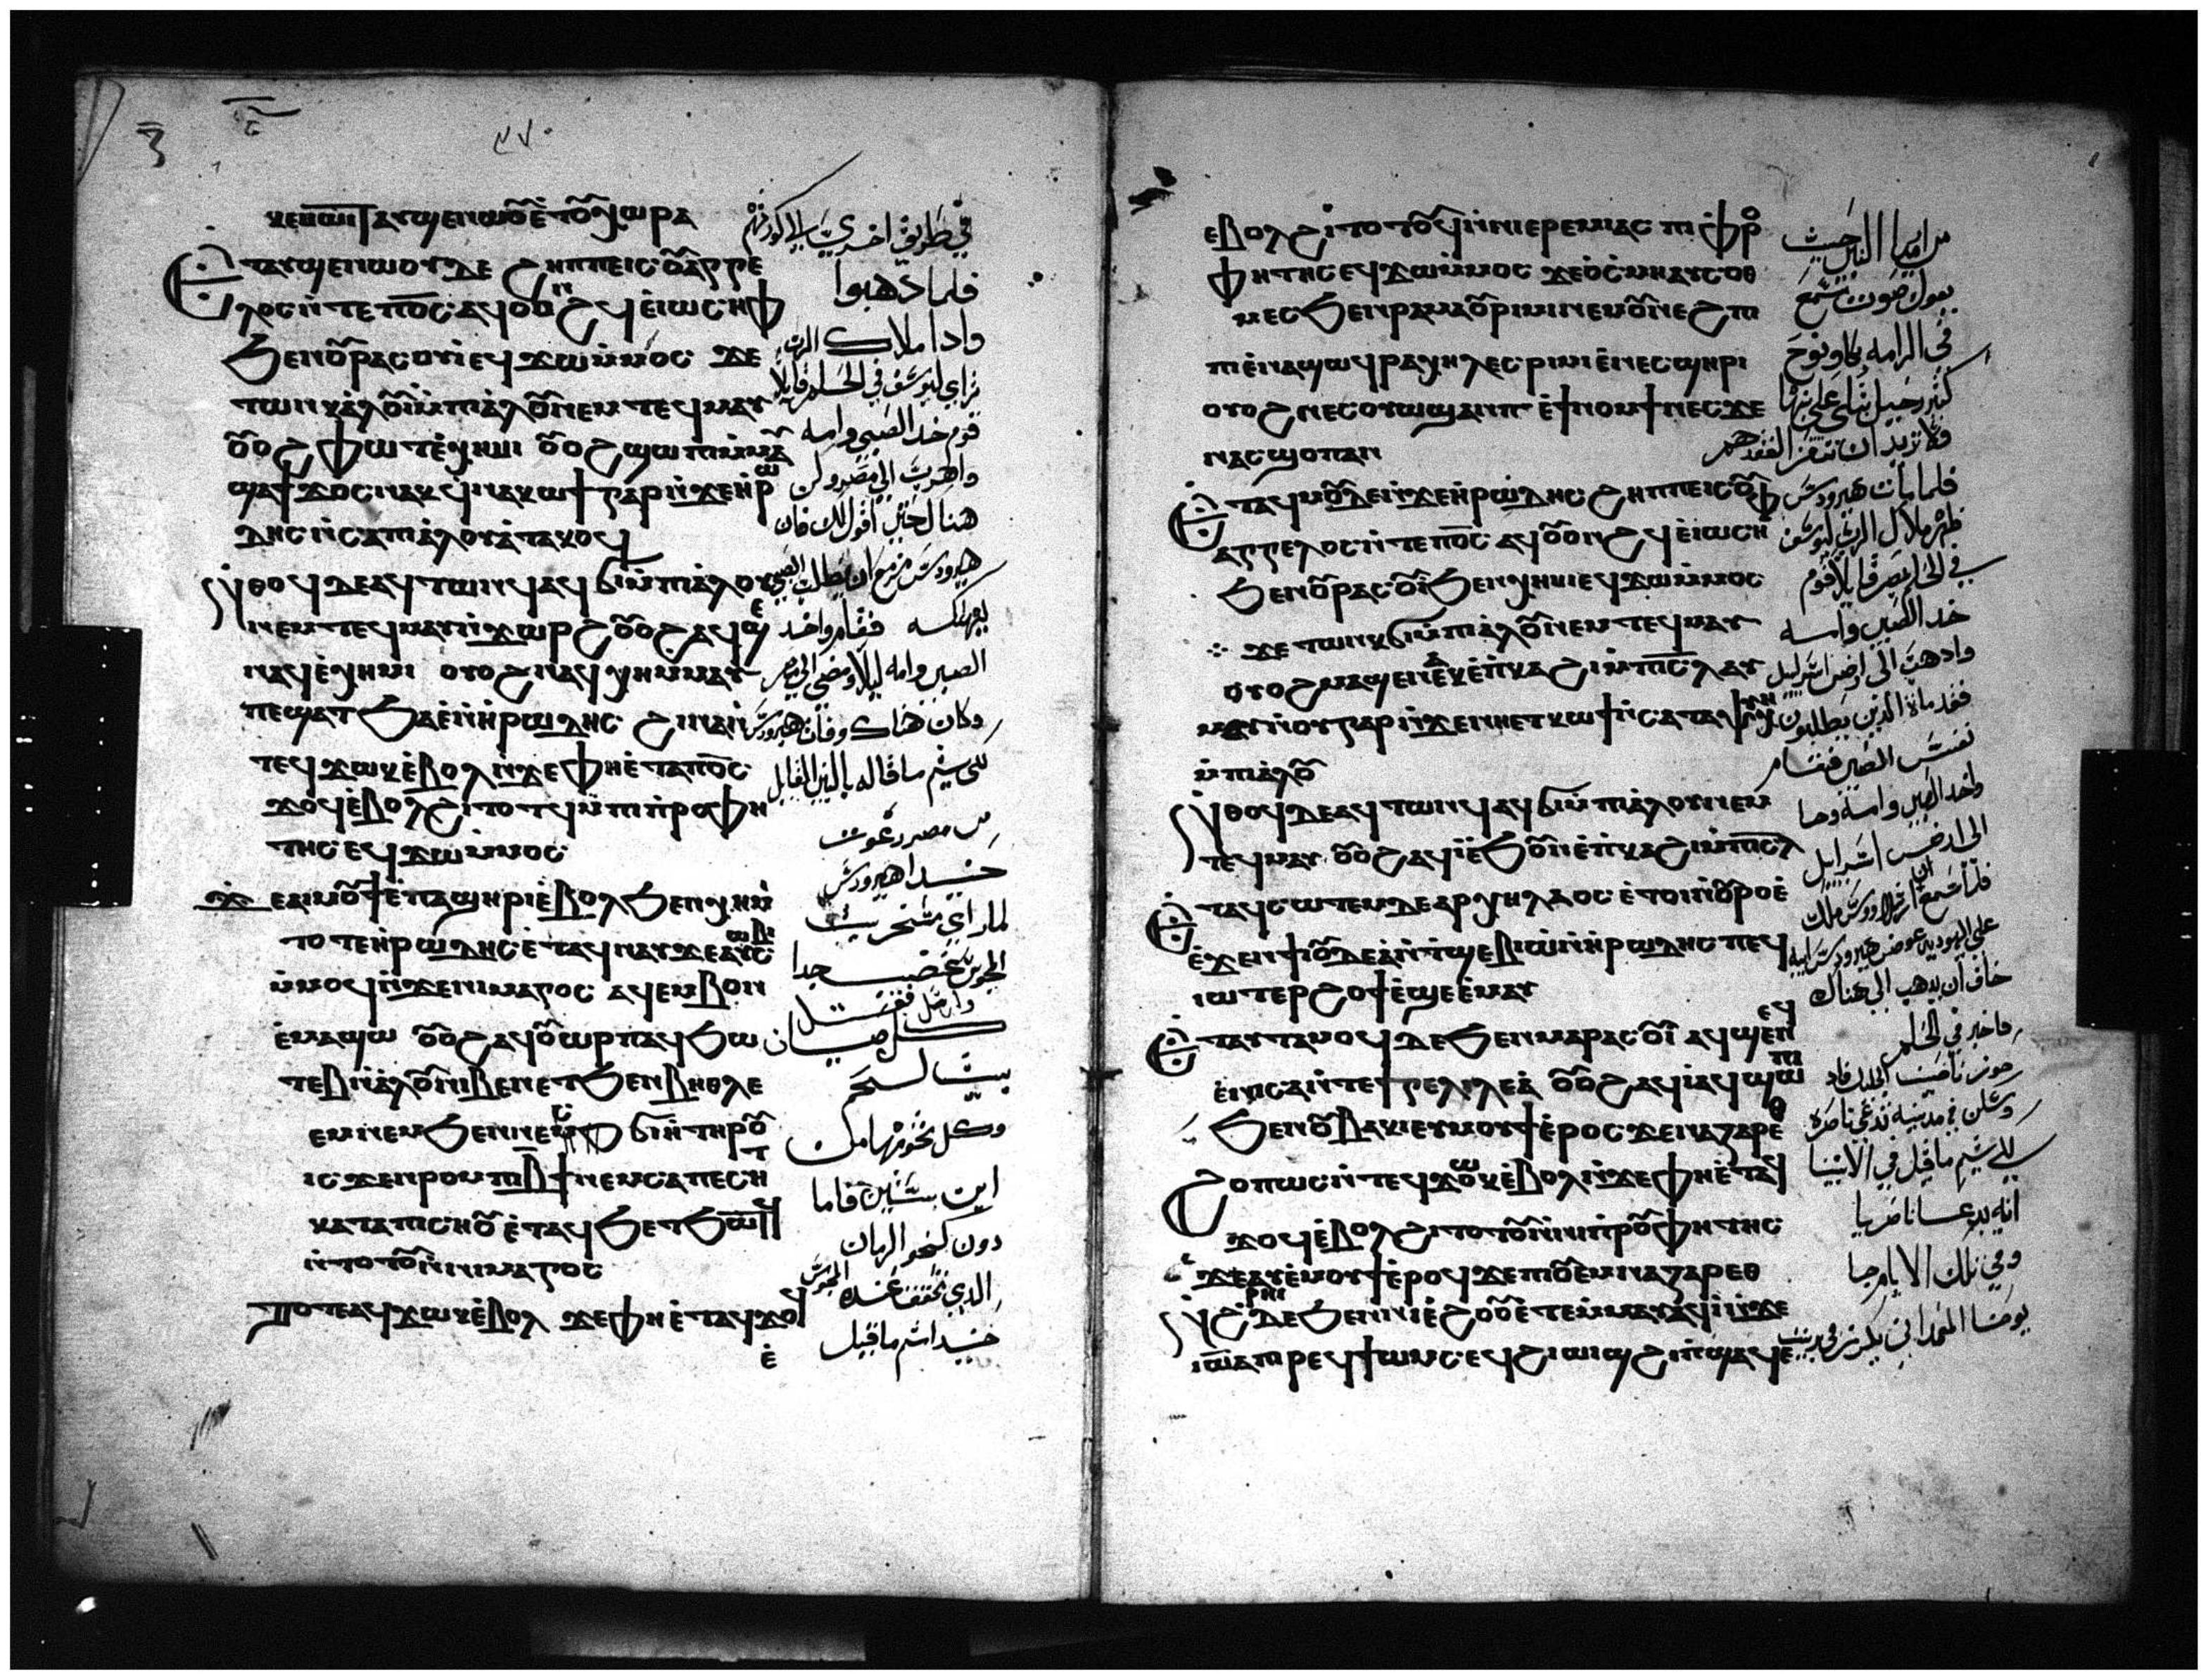 ⲕⲉⲙⲱⲓⲧ ⲁⲩϣⲉⲛⲱⲟⲩ ⲉⲧⲟⲩⲭⲱⲣⲁ
ⲉⲧⲁⲩϣⲉⲛⲱⲟⲩ ⲇⲉ ϩⲏⲡⲡⲉ ⲓⲥ ⲟⲩⲁⲅⲅⲉ
ⲗⲟⲥ ⲛⲧⲉ ⲡⲟⲥ ⲁϥⲟⲩⲟⲛϩϥ ⲉⲓⲱⲥⲏⲫ
ϧⲉⲛⲟⲩⲣⲁⲥⲟⲩⲓ ⲉϥϫⲱⲙⲙⲟⲥ ϫⲉ
ⲧⲱⲛⲕ ⲁⲗⲟⲩⲓ ⲙⲡⲓⲁⲗⲟⲩ ⲛⲉⲙ ⲧⲉϥⲙⲁⲩ
ⲟⲩⲟϩ ⲫⲱⲧ ⲉⲭⲏⲙⲓ ⲟⲩⲟϩ ϣⲱⲡⲓ ⲙⲙⲁⲩ
ϣⲁϯϫⲟⲥ ⲛⲁⲕ ϥⲛⲁⲕⲱϯ ⲅⲁⲣ ⲛϫⲉ ⲏⲣⲱ
ⲇⲏⲥ ⲛⲥⲁ ⲡⲓⲁⲗⲟⲩ ⲉⲧⲁⲕⲟϥ
ⲛⲑⲟϥ ⲇⲉ ⲁϥⲧⲱⲛϥ ⲁϥϭⲓ ⲙⲡⲓⲁⲗⲟⲩ
ⲛⲉⲙ ⲧⲉϥⲙⲁⲩ ⲛϫⲱⲣϩ ⲟⲩⲟϩ ⲁϥϣⲉ
ⲛⲁϥ ⲉⲭⲏⲙⲓ ⲟⲩⲟϩ ⲛⲁϥⲭⲏ ⲙⲙⲁⲩ
ⲡⲉ ϣⲁⲧϧⲁⲉ ⲛⲏⲣⲱⲇⲏⲥ ϩⲓⲛⲁ ⲛ
ⲧⲉϥϫⲱⲕ ⲉⲃⲟⲗ ⲛϫⲉ ⲫⲏ ⲉⲧⲁ ⲡⲟⲥ
ϫⲟϥ ⲉⲃⲟⲗϩⲓⲧⲟⲧϥ ⲙⲡⲓⲡⲣⲟⲫⲏ
ⲧⲏⲥ ⲉϥϫⲱⲙⲙⲟⲥ
ϫⲉ ⲁⲓⲙⲟⲩϯ ⲉⲡⲁϣⲏⲣⲓ ⲉⲃⲟⲗϧⲉⲛ ⲭⲏⲙⲓ
ⲧⲟⲧⲉ ⲏⲣⲱⲇⲏⲥ ⲉⲧⲁϥⲛⲁⲩ ϫⲉ ⲁⲩⲥⲱⲃⲓ
ⲙⲙⲟϥ ⲛϫⲉ ⲛⲓⲙⲁⲅⲟⲥ ⲁϥⲉⲙⲃⲟⲛ
ⲉⲙⲁϣⲱ ⲟⲩⲟϩ ⲁϥⲟⲩⲱⲣⲡ ⲁϥϧⲱ
ⲧⲉⲃ ⲛⲁⲗⲟⲩ ⲛⲓⲃⲉⲛ ⲉⲧϧⲉⲛ ⲃⲏⲑⲗⲉ
ⲉⲙ ⲛⲉⲙ ϧⲉⲛ ⲛⲉⲥϭⲓⲏ ⲧⲏⲣⲟⲩ
ⲓⲥϫⲉⲛ ⲣⲟⲙⲡⲓ ⲃϯ ⲛⲉⲙ ⲥⲁⲡⲉⲥⲏⲧ
ⲕⲁⲧⲁ ⲡⲓⲥⲏⲟⲩ ⲉⲧⲁϥϧⲉⲧϧⲱⲧϥ
ⲛⲧⲟⲧⲟⲩ ⲛⲛⲓⲙⲁⲅⲟⲥ
ⲧⲟⲧⲉ ⲁϥϫⲱⲕ ⲉⲃⲟⲗ ϫⲉ ⲫⲏ ⲉⲧⲁϥϫⲟϥ
في طريق اخري الي كورتهم
فلما ذهبوا
واذا ملاك الرب
تراي ليوسف في الحلم قايلا
قوم خد الصبي وامه
واهرب الي مصر وكن
هناك حتي اقول لك فان
هيرودس مزمع ان يطلب الصبي
ليهلكه فقام واخد
الصبي وامه ليلا ومضي الي مصر
وكان هناك وفاة هيرودس
لكي يتم ما قاله بالنبي القايل
من مصر دعوت
حينيد هيرودس
لما راي سخريت
المجوس غضب جدا
وارسل فقتل
كل صبيان
بيت لحم
وكل تخومها من
ابن سنتين فاما
دون كنحو الزمان
الذي تحقق عنده المجوس
حينيد تم ما قيل
ⲉⲃⲟⲗϩⲓⲧⲟⲧϥ ⲛⲓⲉⲣⲉⲙⲓⲁⲥ ⲡⲓⲡⲣⲟ
ⲫⲏⲧⲏⲥ ⲉϥϫⲱⲙⲙⲟⲥ ϫⲉ ⲟⲩⲥⲙⲏ ⲁⲩⲥⲟⲑ
ⲙⲉⲥ ϧⲉⲛ ⲣⲁⲙⲁ ⲟⲩⲣⲓⲙⲓ ⲛⲉⲙ ⲟⲩⲛⲉϩⲡⲓ
ⲡⲓ ⲉⲛⲁϣⲱϥ ⲣⲁⲭⲏⲗ ⲉⲥⲣⲓⲙⲓ ⲉⲛⲉⲥϣⲏⲣⲓ
ⲟⲩⲟϩ ⲛⲉⲥⲟⲩⲱϣ ⲁⲛ ⲡⲉ ⲉϯⲛⲟⲙϯ ⲛⲁⲥ ϫⲉ
ⲛⲁⲥϣⲟⲡ ⲁⲛ
ⲉⲧⲁϥⲙⲟⲩ ⲇⲉ ⲛϫⲉ ⲏⲣⲱⲇⲏⲥ ϩⲏⲡⲡⲉ ⲓⲥ ⲟⲩ
ⲁⲅⲅⲉⲗⲟⲥ ⲛⲧⲉ ⲡⲟⲥ ⲁϥⲟⲩⲟⲛϩϥ ⲉⲓⲱⲥⲏⲫ
ϧⲉⲛ ⲟⲩⲣⲁⲥⲟⲩⲓ ϧⲉⲛ ⲭⲏⲙⲓ ⲉϥϫⲱⲙⲙⲟⲥ
ϫⲉ ⲧⲱⲛⲕ ϭⲓ ⲙⲡⲓⲁⲗⲟⲩ ⲛⲉⲙ ⲧⲉϥⲙⲁⲩ
ⲟⲩⲟϩ ⲙⲁϣⲉⲛⲁⲕ ⲉⲡⲕⲁϩⲓ ⲙⲡⲓⲥⲗ ⲁⲩ
ⲙⲟⲩ ⲅⲁⲣ ⲛϫⲉ ⲛⲏ ⲉⲧⲕⲱϯ ⲛⲥⲁ ⲧⲯⲩⲭⲏ
ⲙⲡⲓⲁⲗⲟⲩ
ⲛⲑⲟϥ ⲇⲉ ⲁϥⲧⲱⲛϥ ⲁϥϭⲓ ⲙⲡⲓⲁⲗⲟⲩ ⲛⲉⲙ
ⲧⲉϥⲙⲁⲩ ⲟⲩⲟϩ ⲁϥⲓ ⲉϧⲟⲩⲛ ⲉⲡⲕⲁϩⲓ ⲙⲡⲓⲥⲗ
ⲉⲧⲁϥⲥⲱⲧⲉⲙ ⲇⲉ ⲁⲣⲭⲏⲗⲁⲟⲥ ⲉⲧⲟⲓ ⲛⲟⲩⲣⲟ ⲉ
ⲉϫⲉⲛ ϯⲟⲩⲇⲉⲁ ⲛⲧϣⲉⲃⲓⲱ ⲛⲏⲣⲱⲇⲏⲥ ⲡⲉϥ
ⲓⲱⲧ ⲉⲣϩⲟϯ ⲉϣⲉ ⲉⲙⲁⲩ
ⲉⲧⲁⲩⲧⲁⲙⲟϥ ⲇⲉ ϧⲉⲛ ⲟⲩⲣⲁⲥⲟⲩⲓ ⲁϥϣⲉⲛⲁϥ
ⲉⲛⲓⲥⲁ ⲛⲧⲉ ϯⲅⲉⲗⲓⲗⲉⲁ ⲟⲩⲟϩ ⲁϥⲓ ⲁϥϣⲱⲡⲓ
ϧⲉⲛ ⲟⲩⲃⲁⲕⲓ ⲉⲩⲙⲟⲩϯ ⲉⲣⲟⲥ ϫⲉ ⲛⲁⲍⲁⲣⲉⲑ
ϩⲟⲡⲱⲥ ⲛⲧⲉϥϫⲱⲕ ⲉⲃⲟⲗ ⲛϫⲉ ⲫⲏ ⲉⲧⲁϥ
ϫⲟϥ ⲉⲃⲟⲗϩⲓⲧⲟⲧⲟⲩ ⲛⲛⲓⲡⲣⲟⲫⲏⲧⲏⲥ
ϫⲉ ⲉⲩⲉⲙⲟⲩϯ ⲉⲣⲟϥ ϫⲉ ⲡⲓⲣⲉⲙⲛⲁⲍⲁⲣⲉⲑ
ⲛϩⲣⲏⲓ ⲇⲉ ϧⲉⲛ ⲛⲓⲉϩⲟⲟⲩ ⲉⲧⲉⲙⲙⲁⲩ ⲁϥⲓ ⲛϫⲉ
ⲓⲱⲁ ⲡⲓⲣⲉϥϯⲱⲙⲥ ⲉϥϩⲓⲱⲓϣ ϩⲓ ⲡϣⲁϥⲉ
من ارميا النبي حيث
يقول صوت سمع
في الرامه بكا ونوح
كثير رحيل تبكي علي بنيها
ولا تريد ان تتعزا لفقدهم
فلما مات هيرودس
ظهر ملاك الرب ليوسف
في الحلم بمصر قايلا قوم
خد الصبي وامه
وادهب الي ارض اسرايل
فقد مات الدين يطلبون
نفس الصبي فقام
واخد الصبي وامه وجا
الي ارض اسرايل
فلما سمع ان ارشلاووس ملك
علي اليهوديه عوض هيرودس ابيه
خاف ان يدهب الي هناك
فاخبر في الحلم
وسكن في مدينه تدعي ناصره
لكي يتم ما قيل في الانبيا
انه يدعا ناصريا
وفي تلك الايام جا
يوحنا المعمداني يكرز في بريت